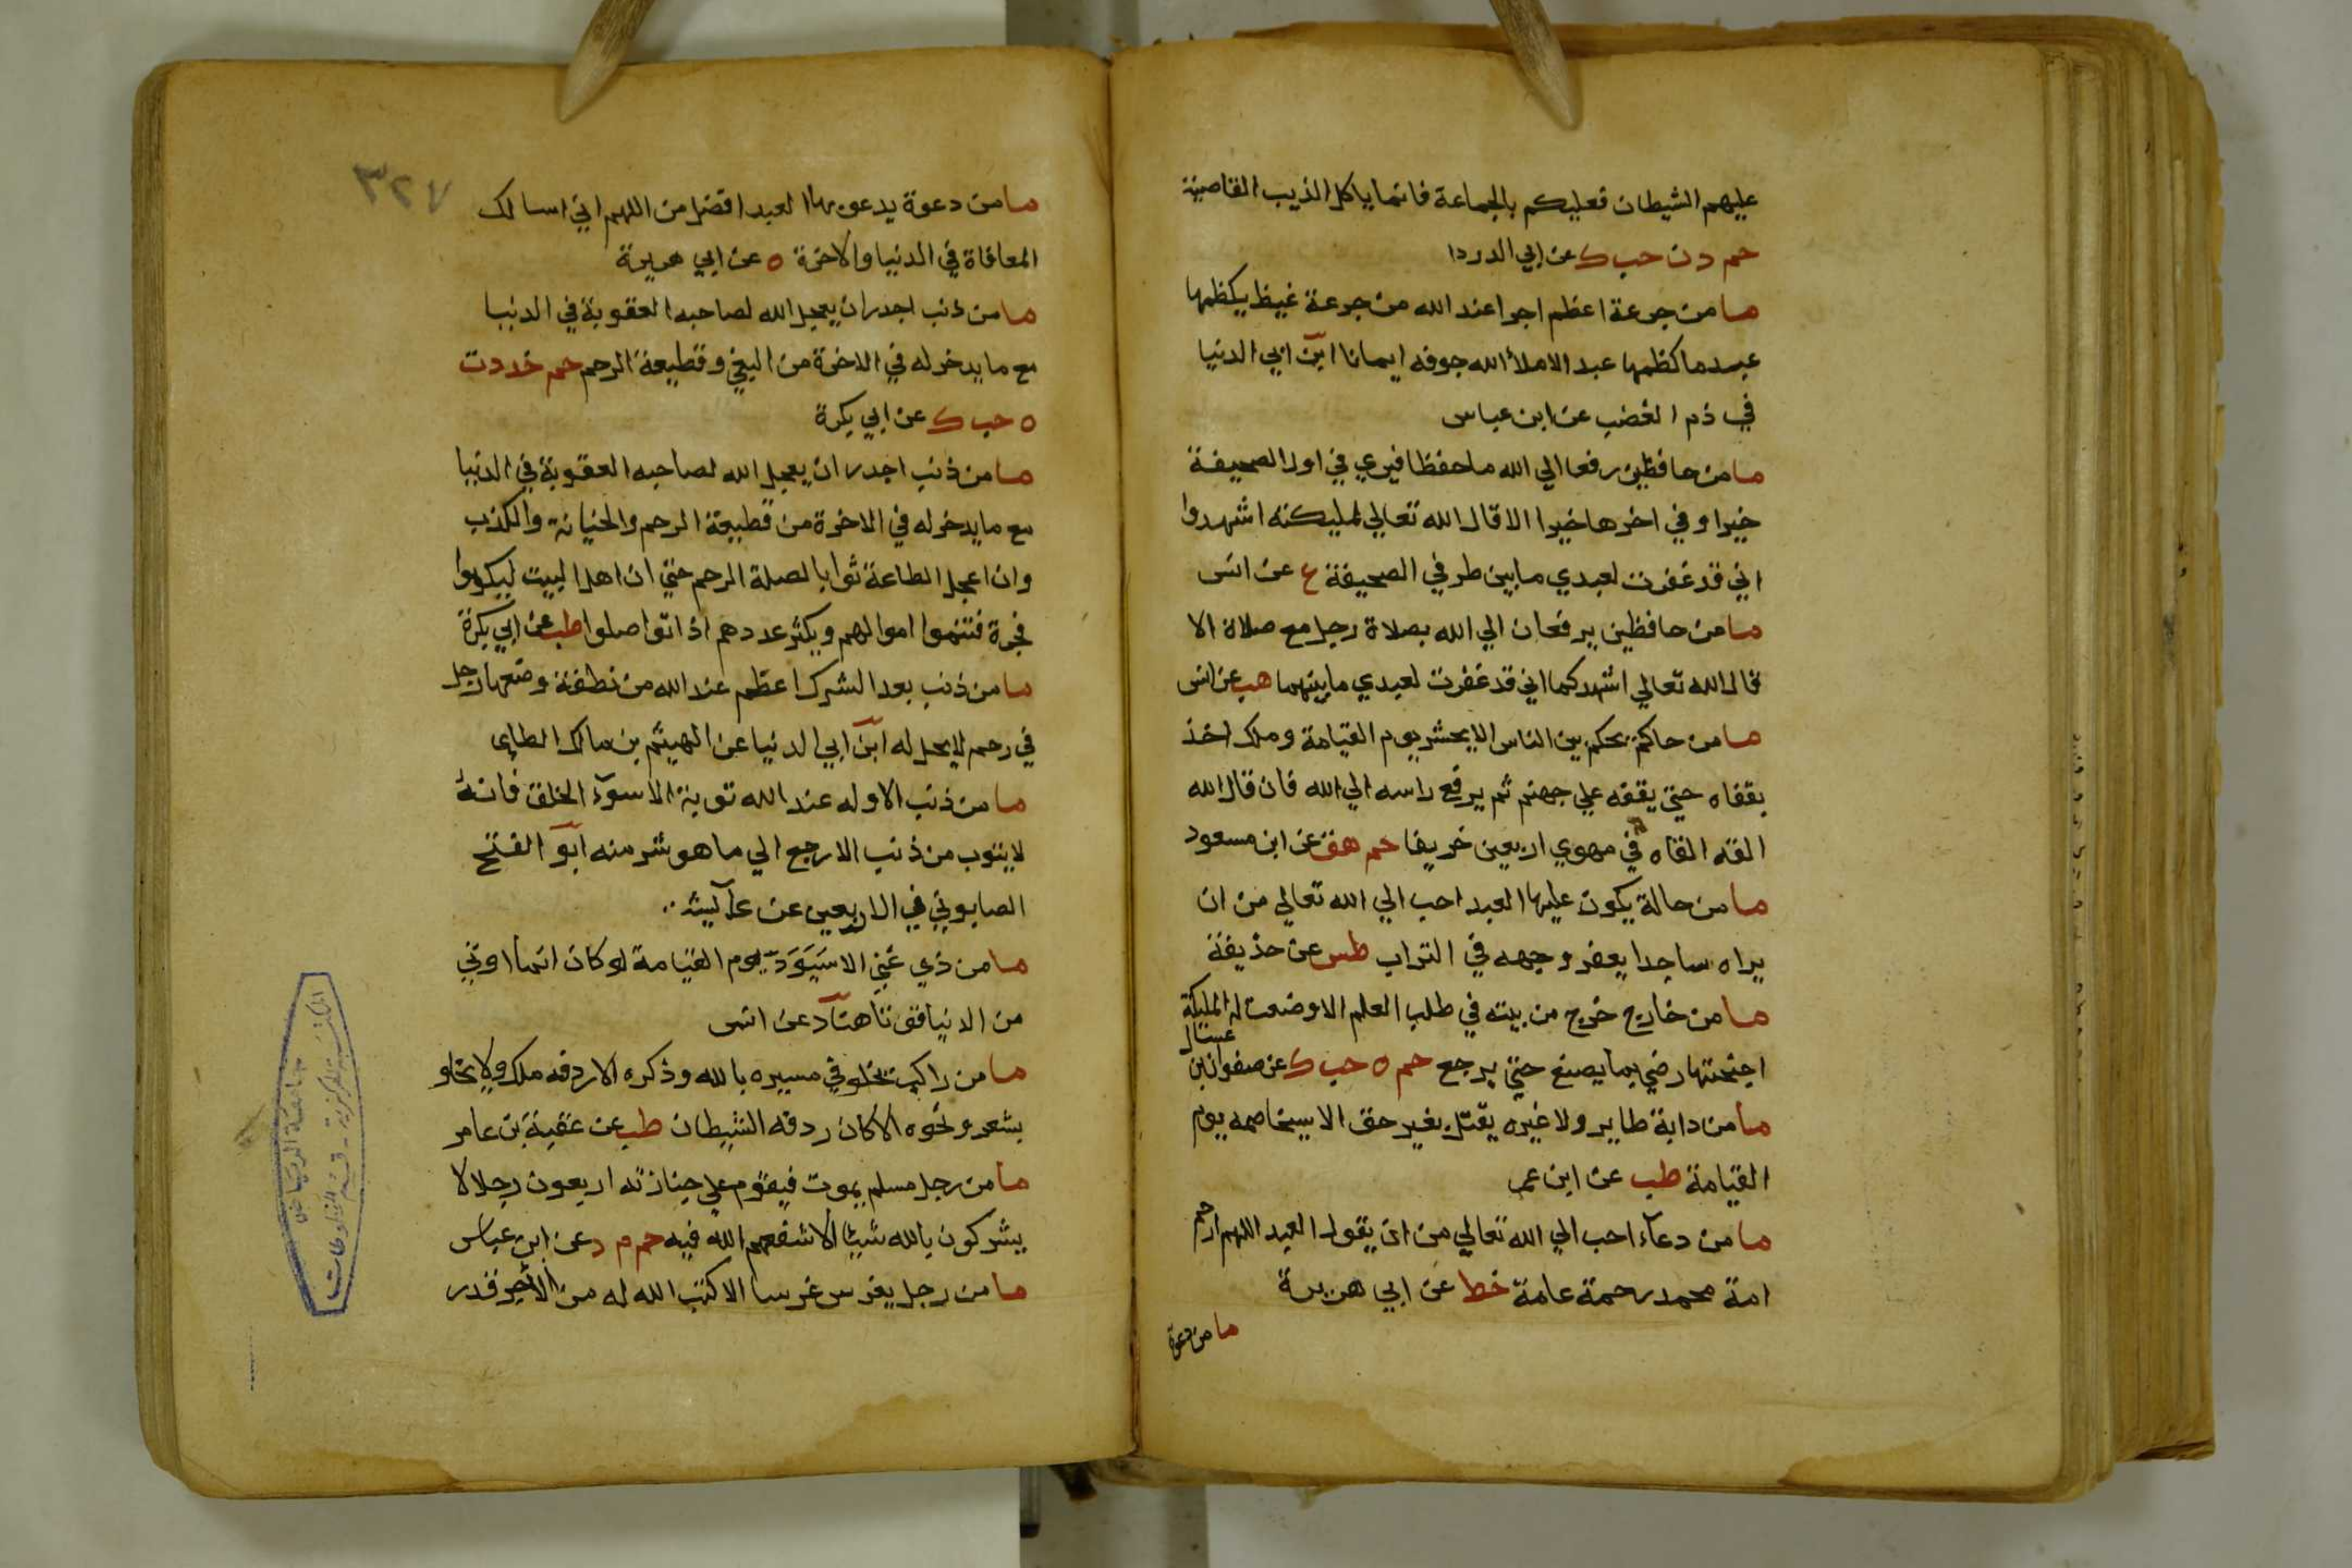 عليهم الشيطان فعليكم بالجماعة فانما ياكل الذيب القاصية
حم د ن حب ك عن ابي الدردا
ما من جرعة اعظم اجرا عند الله من جرعة غيظ يكظمها
عبد ما كظمها عبد الا ملأ الله جوفه ايمانا ابن ابي الدنيا
في ذم الغضب عن ابن عباس
ما من حافظين رفعا الي الله ما حفظا فيري في اول الصحيفة
خيرا وفي اخرها خيرا الا قال الله تعالي لمليكته اشهدوا
اني قد غفرت لعبدي ما بين طرفي الصحيفة ع عن انس
ما من حافظين يرفعان الي الله بصلاة رجل مع صلاة الا
قال الله تعالي اشهدكما اني قد غفرت لعبدي ما بينهما هب عن انس
ما من حاكم يحكم بين الناس الا يحشر يوم القيامة وملك اخذ
بقفاه حتي يقفه علي جهنم ثم يرفع راسه الي الله فان قال الله
القه القاه في مهوي اربعين خريفا حم هق عن ابن مسعود
ما من حالة يكون عليها العبد احب الي الله تعالي من ان
يراه ساجدا يعفر وجهه في التراب طس عن حذيفة
ما من خارج خرج من بيته في طلب العلم الا وضعت له المليكة
اجنحتها رضي بما يصنع حتي يرجع حم ه حب ك عن صفوان بن عسال
ما من دابة طاير ولا غيره يقتل بغير حق الا سيخاصمه يوم
القيامة طب عن ابن عمر
ما من دعآء احب الي الله تعالي من ان يقول العبد اللهم ارحم
امة محمد رحمة عامة خط عن ابي هريرة
ما من دعوة
٣٢٧
ما من دعوة يدعو بها العبد افضل من اللهم اني اسالك
المعافاة في الدنيا والاخرة ه عن ابي هريرة
ما من ذنب اجدر ان يعجل الله لصاحبه العقوبة في الدنيا
مع ما يدخر له في الاخرة من البغي وقطيعة الرحم حم خد د ت
ه حب ك عن ابي بكرة
ما من ذنب اجدر ان يعجل الله لصاحبه العقوبة في الدنيا
مع ما يدخر له في الاخرة من قطيعة الرحم والخيانة والكذب
وان اعجل الطاعة ثوابا لصلة الرحم حتي ان اهل البيت ليكونوا
فجرة فتنموا اموالهم ويكثر عددهم اذا تواصلوا طب عن ابي بكرة
ما من ذنب بعد الشرك اعظم عند الله من نطفة وضعها رجل
في رحم لا يحل له ابن ابي الدنيا عن الهيثم بن مالك الطاي
ما من ذنب الا وله عند الله توبة الا سوء الخلق فانه
لا يتوب من ذنب الا رجع الي ما هو شر منه ابو الفتح
الصابوني في الاربعين عن عآيشه
ما من ذي غني الا سَيَوَدّ يوم القيامة لو كان انما اوتي
من الدنيا قوتا هناد عن انس
ما من راكب يخلو في مسيره بالله وذكره الا ردفه ملك ولا يخلو
بشعر ونحوه الا كان ردفه الشيطان طب عن عقبة بن عامر
ما من رجل مسلم يموت فيقوم علي جنازته اربعون رجلا لا
يشركون بالله شيئا الا شفعهم الله فيه حم م د عن ابن عباس
ما من رجل يغرس غرسا الا كتب الله له من الأجر قدر
جامعة الرياض
المكتبة المركزية - قسم المخطوطات